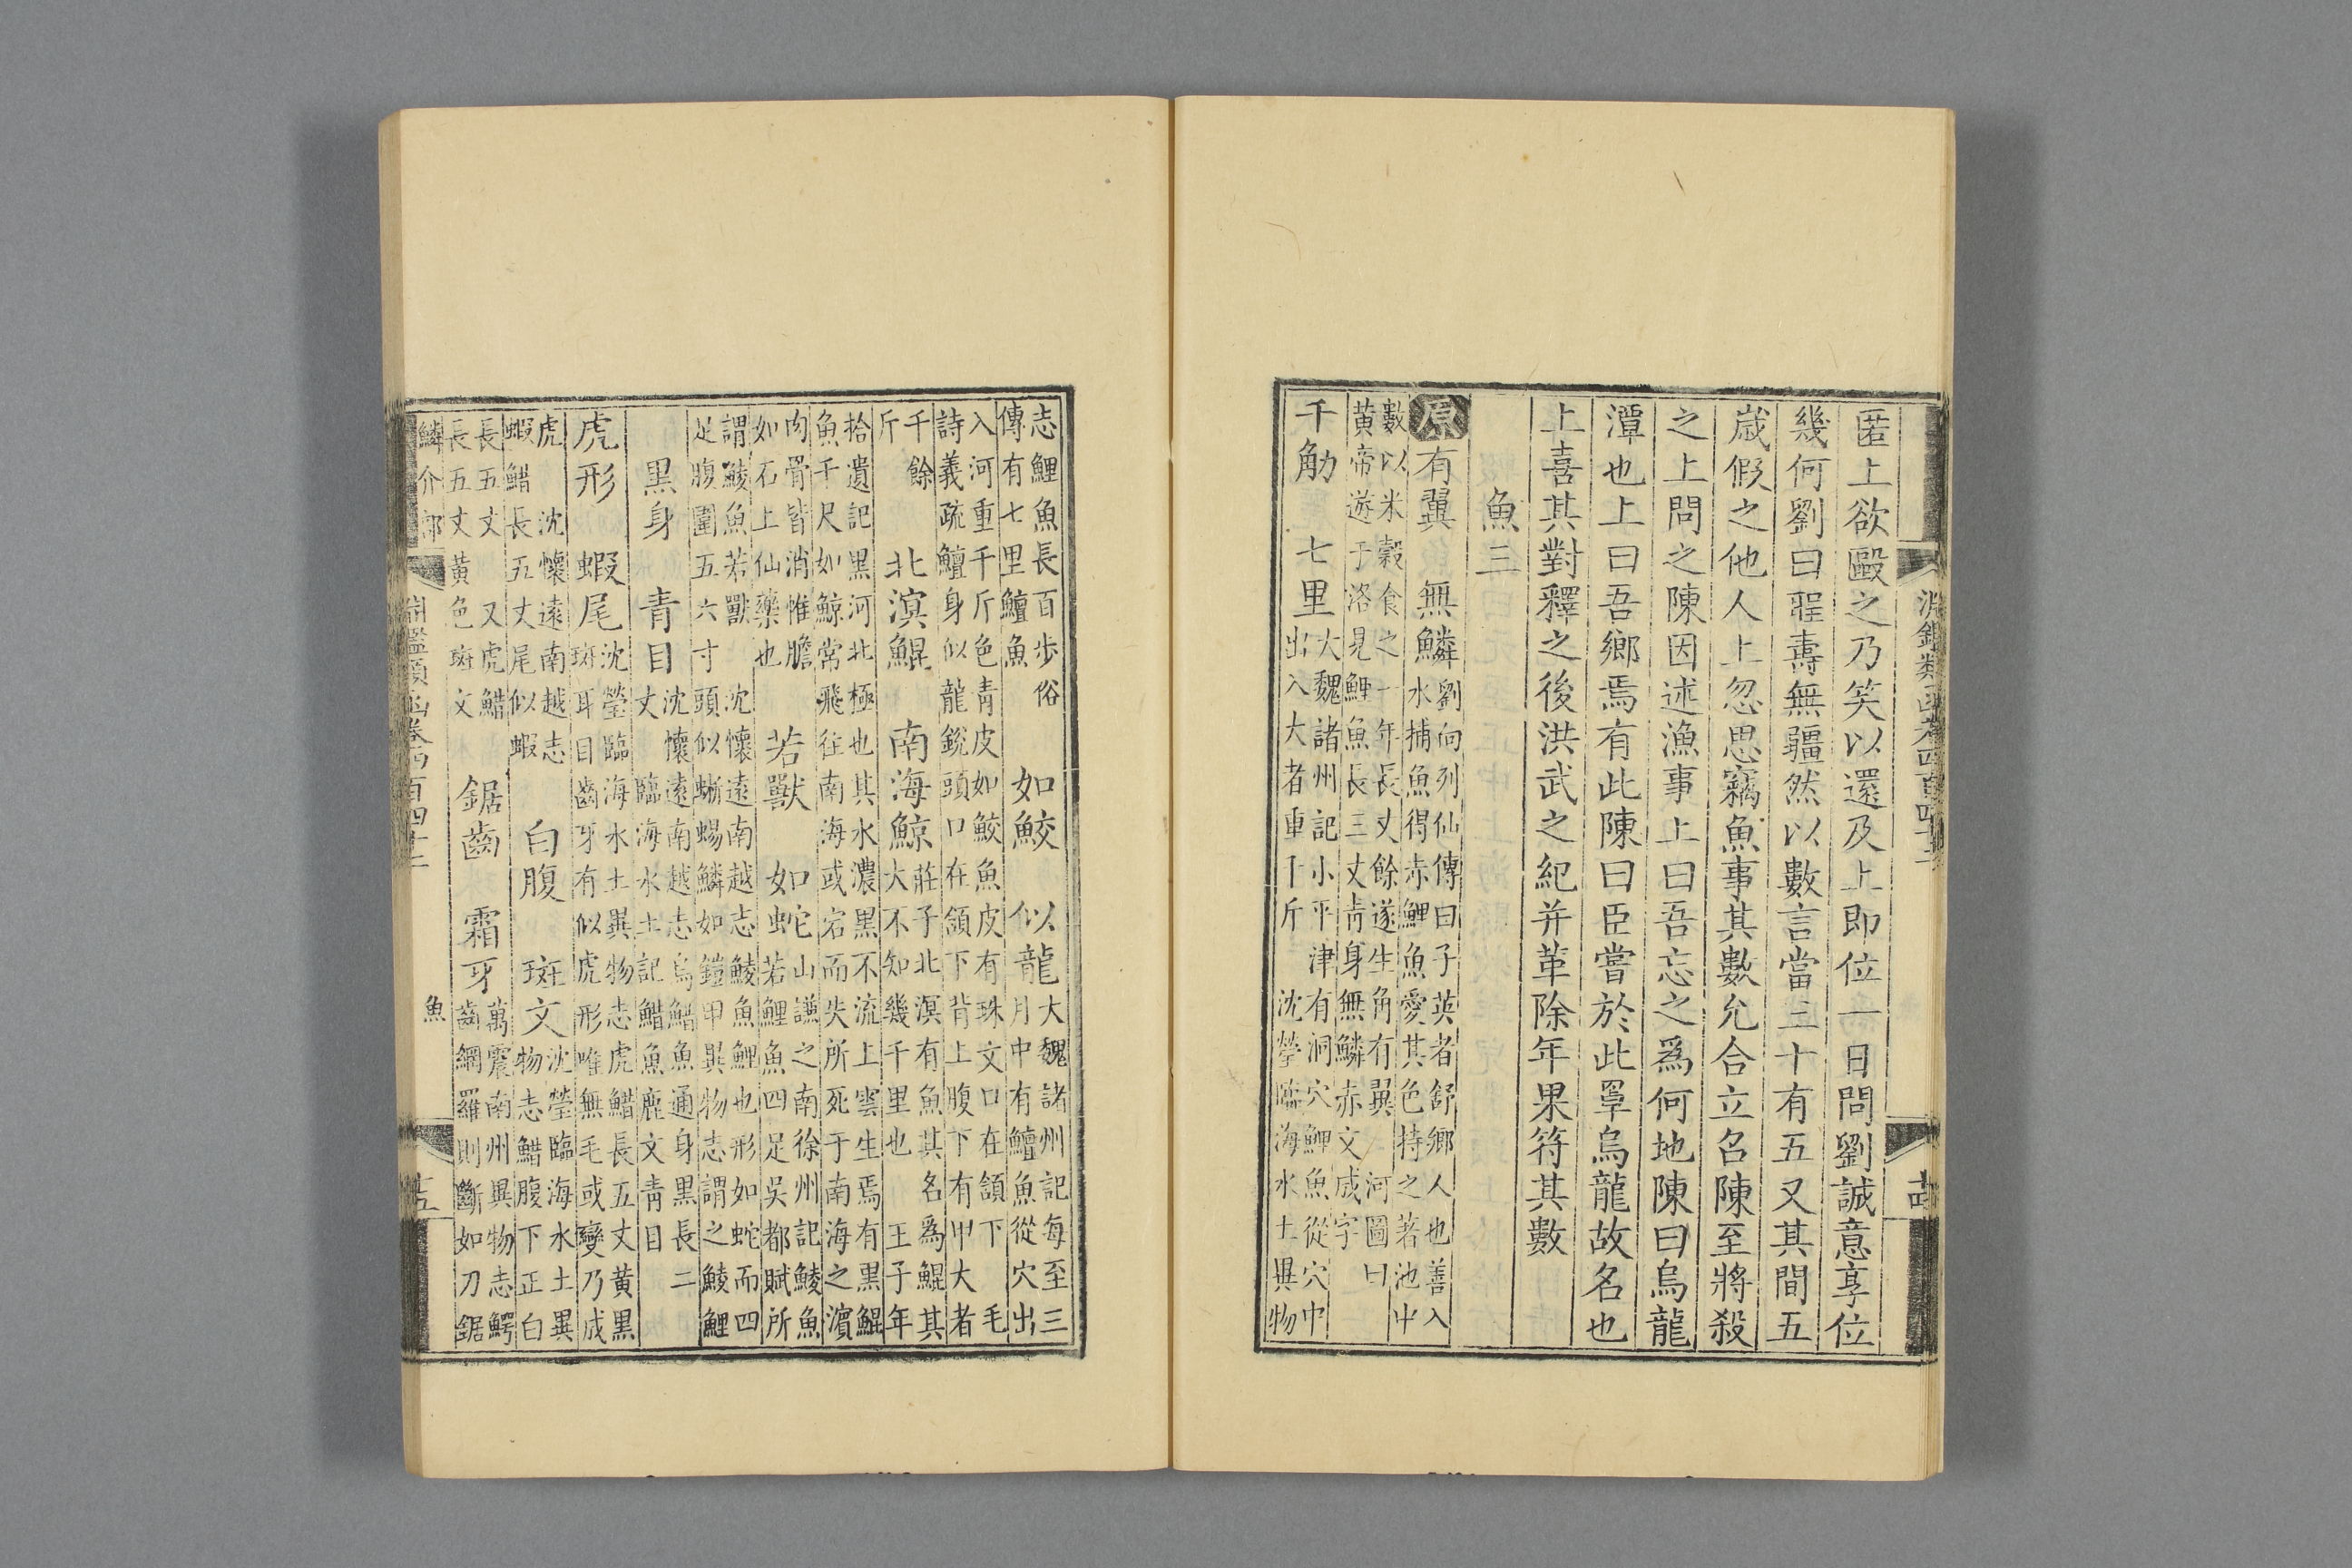 淵鑑類函卷四百四十二
十四
匿上欲毆之乃笑以還及上即位一日問劉誠意享位
幾何劉曰聖壽無疆然以數言當三十有五又其間五
歲假之他人上忽思竊魚事其數允合立召陳至將殺
之上問之陳因述漁事上曰吾忘之爲何地陳曰烏龍
潭也上曰吾鄉焉有此陳曰臣嘗於此罩烏龍故名也
上喜其對釋之後洪武之紀并革除年果符其數
魚三
原有翼 無鱗
劉向列仙傳曰子英者舒鄉人也善入
水捕魚得赤鯉魚愛其色持之著池中
數以米穀食之一年長丈餘遂生角有翼 河圖曰
黃帝遊于洛見鯉魚長三丈靑身無鱗赤文成字
千觔 七里
大魏諸州記小平津有洞穴鯉魚從穴中
出入大者重千斤 沈瑩臨海水土異物
志鯉魚長百步俗
傳有七里鱣魚
如鮫 似龍
大魏諸州記每至三
月中有鱣魚從穴出
入河重千斤色青皮如鮫魚皮有珠文口在頷下 毛
詩義疏鱣身似龍銳頭口在頷下背上腹下有甲大者
千餘
斤
北溟鯤 南海鯨
莊子北溟有魚其名爲鯤其
大不知幾千里也 王子年
拾遺記黑河北極也其水濃黑不流上雲生焉有黑鯤
魚千尺如鯨常飛往南海或宕而失所死于南海之濱
肉骨皆消惟膽
如石上仙藥也
若獸 如蛇
山謙之南徐州記鯪魚
若鯉魚四足吳都賦所
謂鯪魚若獸 沈懷遠南越志鯪魚鯉也形如蛇而四
足腹圍五六寸頭似蜥蜴鱗如鎧甲異物志謂之鯪鯉
黑身 青目
沈懷遠南越志烏鯌魚通身黑長二
丈 臨海水土記鯌魚鹿文青目
虎形 蝦尾
沈瑩臨海水土異物志虎鯌長五丈黃黑
斑耳目齒牙有似虎形唯無毛或變乃成
虎 沈懷遠南越志
蝦鯌長五丈尾似蝦
白腹 斑文
沈瑩臨海水土異
物志鯌腹下正白
長五丈 又虎鯌
長五丈黃色斑文
鋸齒 霜牙
萬震南州異物志鰐
齒網羅則斷如刀鋸
鱗介部
淵鑑類函卷四百四十二
魚
十五